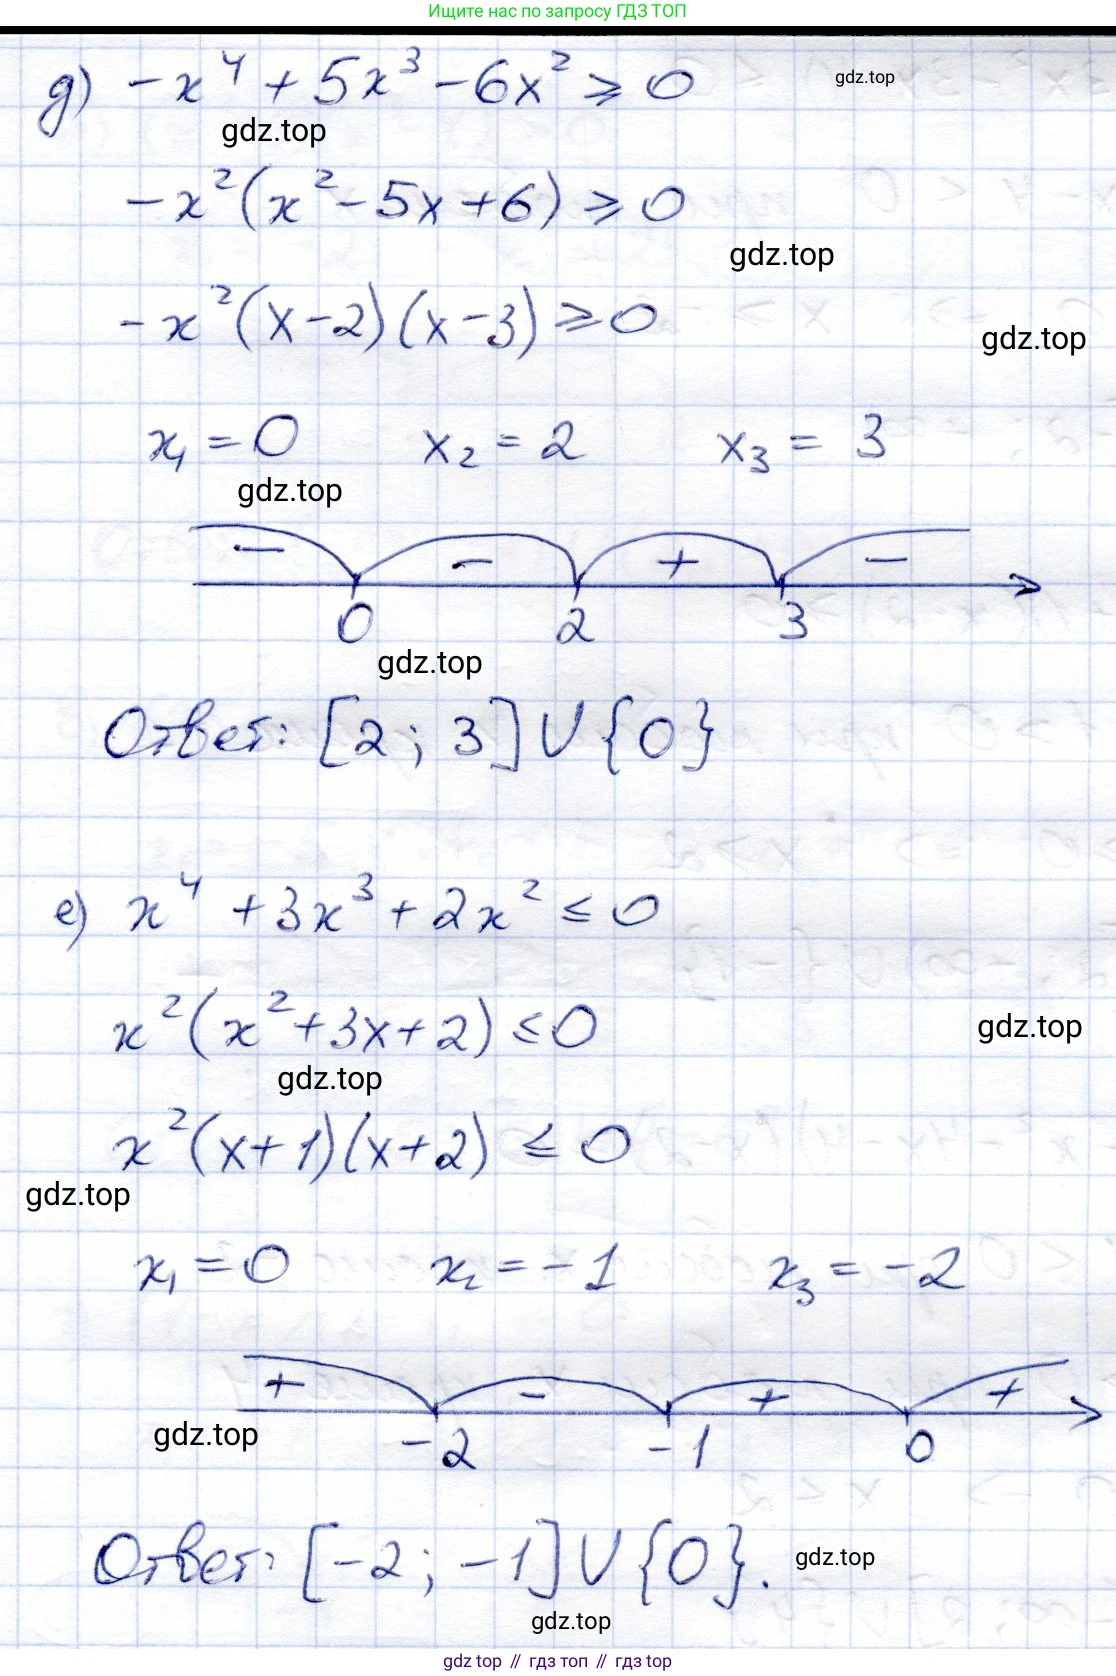 Ищите нас по запросу ГДЗ ТОП
д) -x⁴ + 5x³ - 6x² ⩾ 0
gdz.top
gdz.top
-x²(x² - 5x + 6) ⩾ 0
gdz.top
-x²(x-2)(x-3) ⩾ 0
gdz.top
x₁ = 0 x₂ = 2 x₃ = 3
gdz.top
- - + -
0 2 3
gdz.top
Ответ: [2; 3] ∪ {0}
е) x⁴ + 3x³ + 2x² ≤ 0
x²(x² + 3x + 2) ≤ 0
gdz.top
gdz.top
x²(x+1)(x+2) ≤ 0
gdz.top
x₁ = 0 x₂ = -1 x₃ = -2
+ - + +
gdz.top
-2 -1 0
Ответ: [-2; -1] ∪ {0}.
gdz.top
gdz.top
gdz top // гдз топ // gdz.top